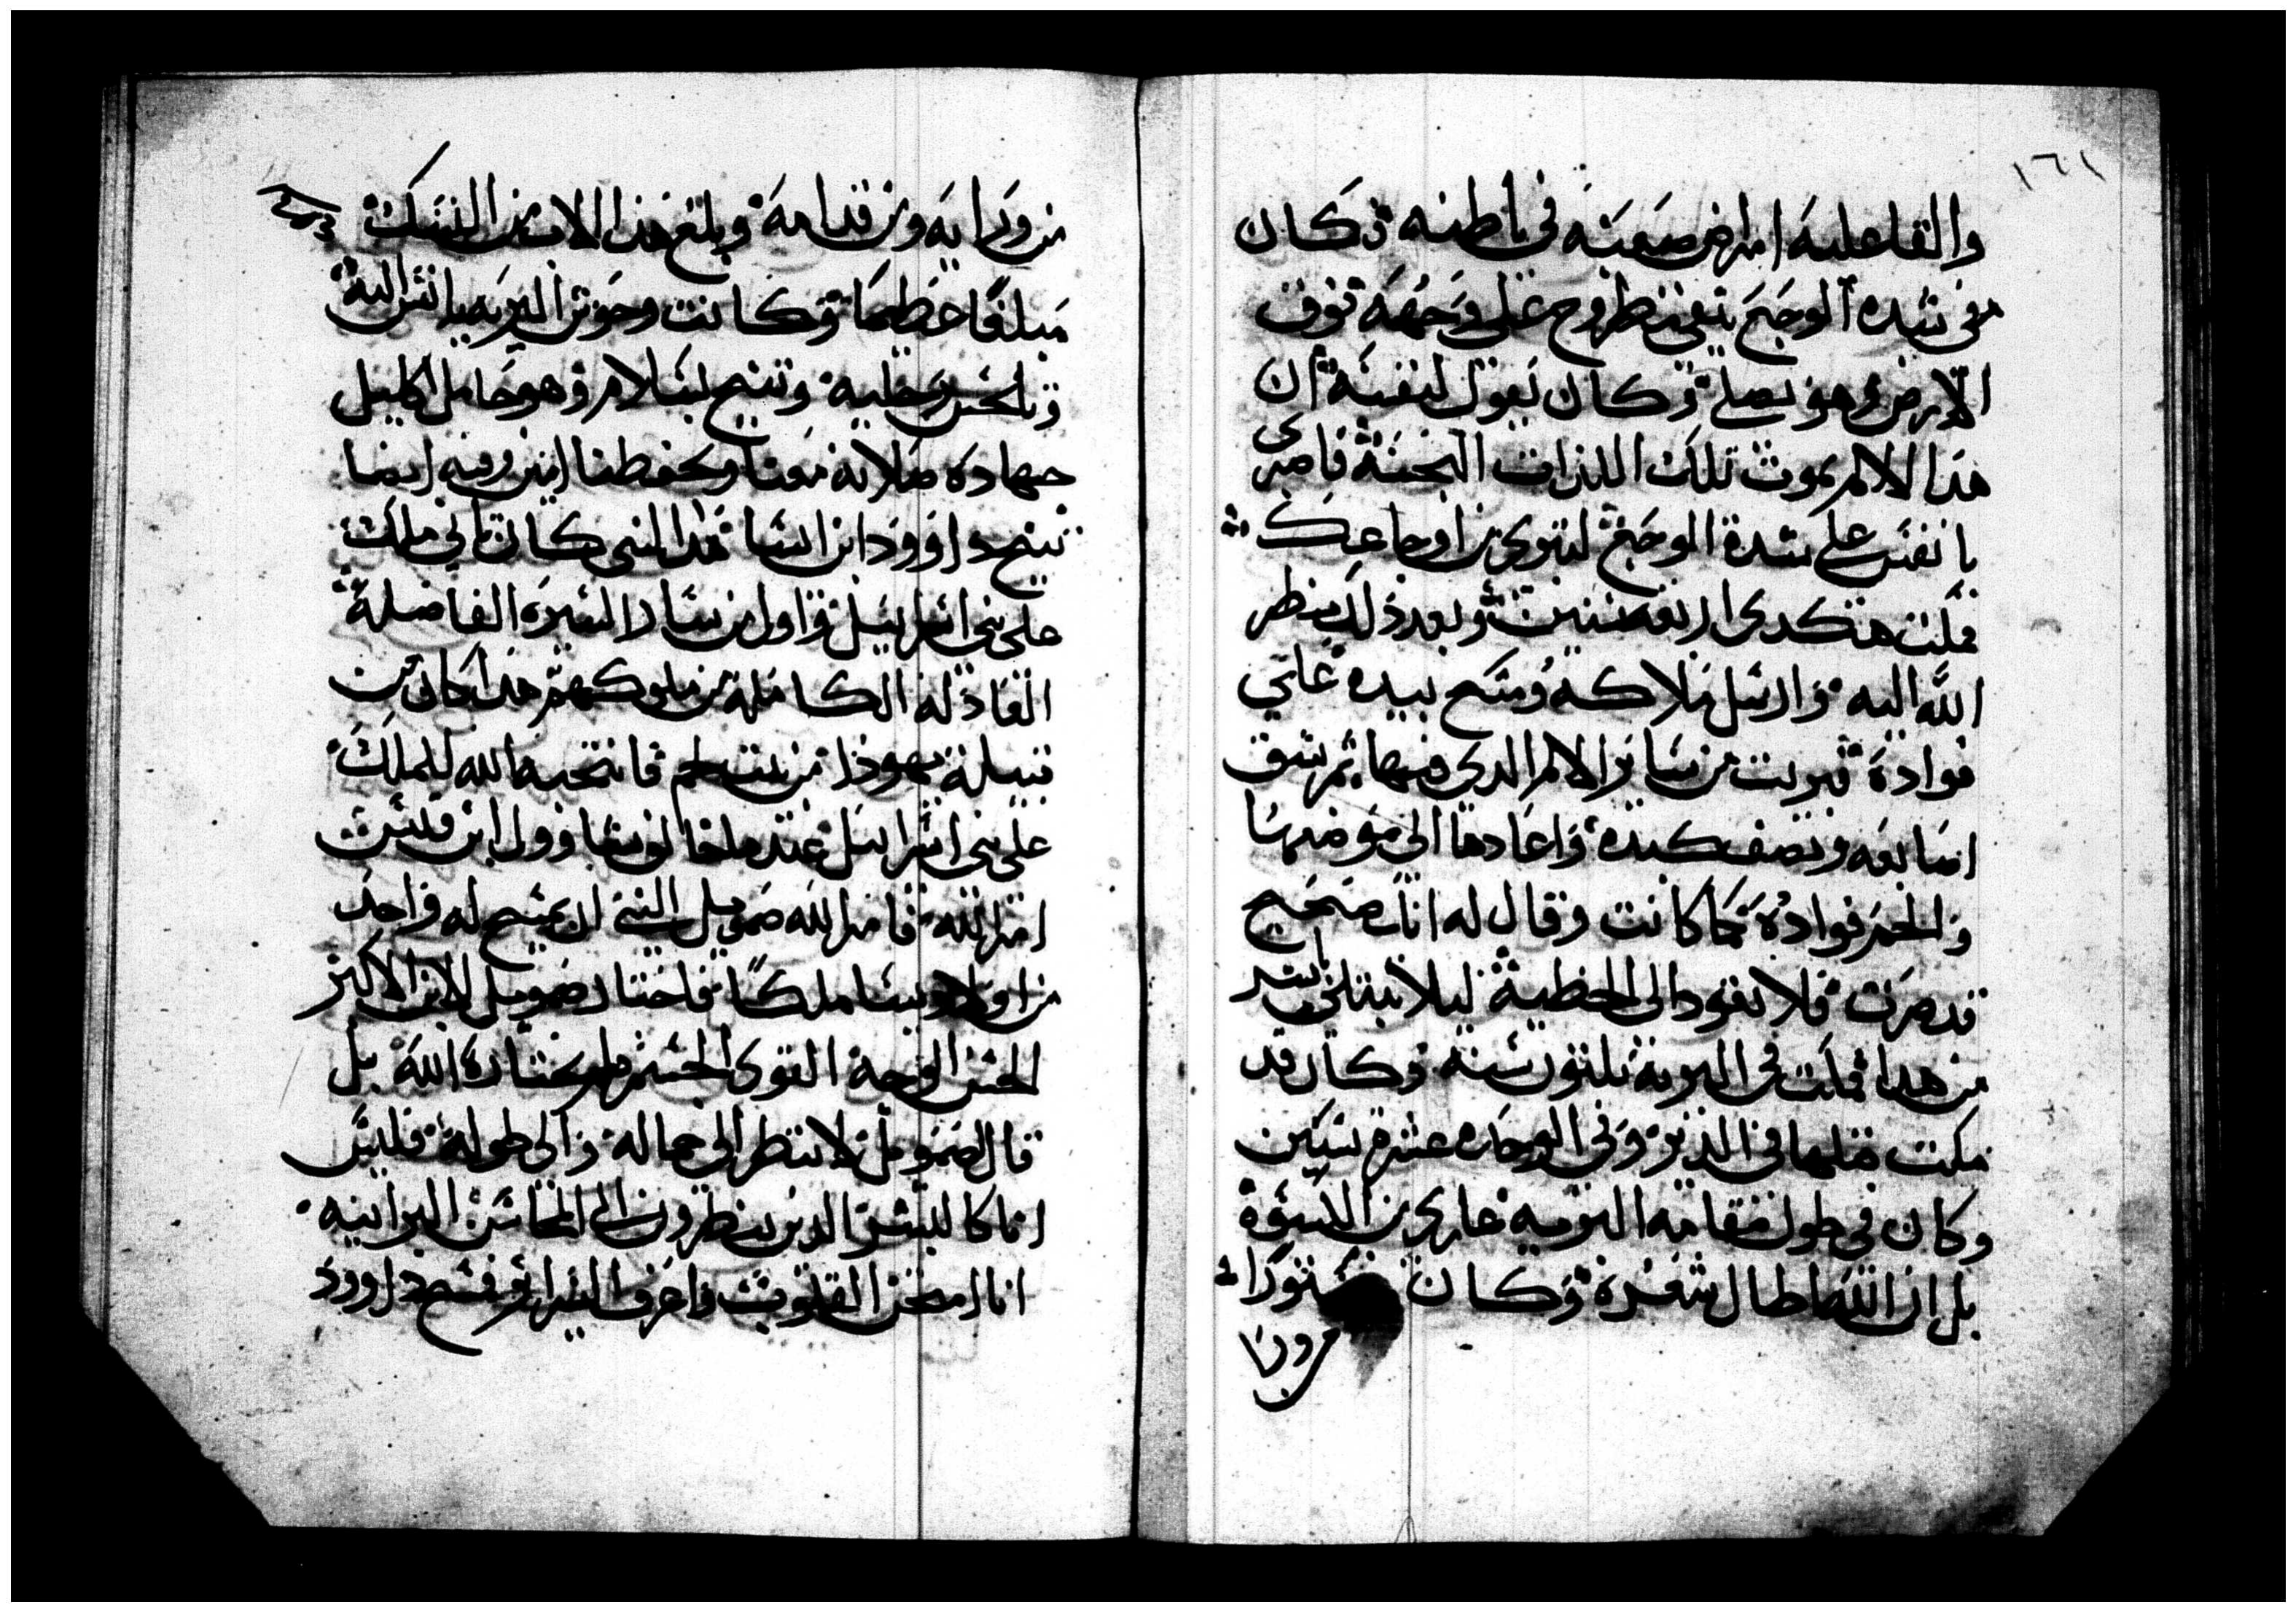 ١٦١
والقا عليه امراض صعبه في باطنه وكان
من شده الوجع يبقى مطروح على وجهه فوق
الارض وهو يصلي وكان يقول لنفسه ان
هدا الالم يموت تلك اللذات النجسة فاصبري
يا نفس على شدة الوجع لتبري من اوجاعك
فمكت هكدى اربعه سنين وبعد ذلك نظر
الله اليه وارسل ملاكه ومسح بيده على
فواده فبريت من ساير الالم الدي فيها ثم شق
اصابعه ونصف كبده واعادها الى موضعها
والحم فواده كما كانت وقال له انك صحيح
قد صرت فلا تعود الى الخطية ليلا تبتلى باشر
من هدا فمكت في البرية تلتون سنه وكان قد
مكت قبلها في الدير وفي الوحده عشرة سنين
وكان في طول مقامه البرية عاري من الكسوة
بل ان الله اطال شعره وكان مستورا
من ورايه ومن قدامه وبلغ هدا الاب من النسك
مبلغا عظيما وكانت وحوش البرية يانس اليه
وتلحس رجليه وتنيح بسلام وهو حامل اكليل
جهاده صلاته معنا وتحفظنا امين وفيه ايضا
تنيح داوود ابن ايسا هدا النبي كان تاني ملك
على بني اسراييل واول من سار السيرة الفاضلة
العادله الكاملة من ملوكهم هدا كان من
قبيلة يهودا من بيت لحم فانتخبه الله للملك
على بني اسراييل عندما خالف شاوول ابن قيس
امر الله فامر الله صموييل النبي ان يمسح له واحد
من اولاد يسا ملكا فاختار صموييل الابن الاكبر
الحسن الوجه القوي الجسم فلم يختاره الله بل
قال لصموييل لا تنظر الى جماله والى طوله فليس
انا كالبشر الدين ينظرون الى المحاسن البرانيه
انا امتحن القلوب واعرف السراير فمسح داوود